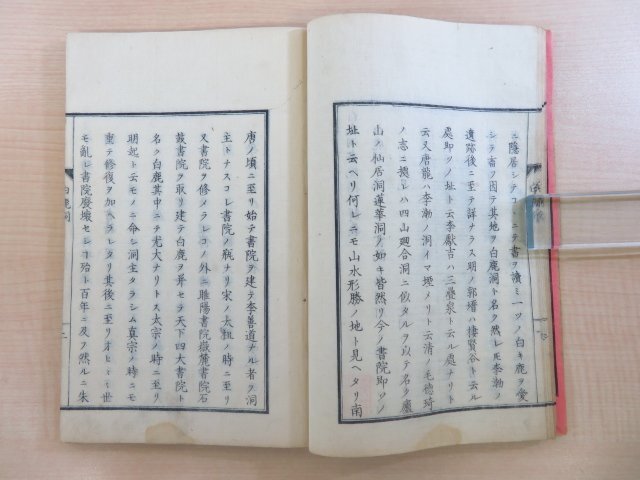 ニ隱居シテコヽニテ書ヲ讀ミ一ツノ白キ鹿ヲ愛
シテ畜フ因テ其地ヲ白鹿洞ト名ク然レ𪜈李渤ノ
遺跡後ニ至テ詳ナラス明ノ郭壔ハ棲賢谷ト云ル
處即ツノ址ト云李獻吉ハ三疊泉ト云ル處ナリト
云又唐龍ハ李渤ノ洞イマ堙メリト云清ノ毛德琦
ノ志ニ據レハ四山廻合洞ニ似タルヲ以テ名ク廬
山ノ仙居洞蓮華洞ノ如キ皆然リ今ノ書院即ツノ
址ト云ヘリ何レニモ山水形勝ノ地ト見ヘタリ南
唐ノ頃ニ至リ始テ書院ヲ建テ李善道ナル者ヲ洞
主トナスコレ書院ノ祖ナリ宋ノ太祖ノ時ニ至リ
又書院ヲ修メラレコノ外ニ睢陽書院嶽麓書院石
鼓書院ヲ取リ建テ白鹿ヲ并セテ天下四大書院ト
名ク白鹿其中ニテ尤大ナリトス太宗ノ時ニ至リ
明起ト云モノニ命シ洞主タラシム真宗ノ時ニモ
重テ修復ヲ加ヘラレタリ其後ニ至リオヒ〳〵世
モ亂レ書院廢壞セシコ殆ト百年ニ及フ然ルニ朱
白鹿洞